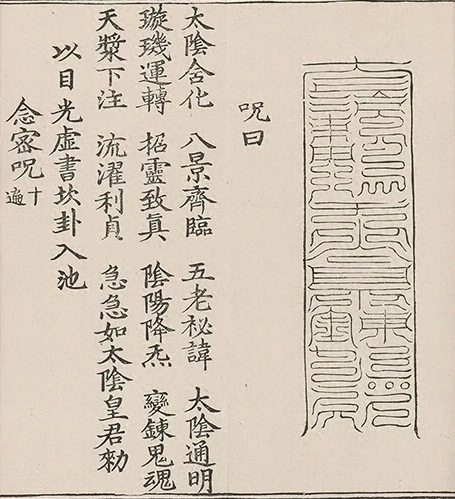 呪曰
太陰含化 八景齊臨 五老秘諱 太陰通明
璇璣運轉 招靈致真 陰陽降炁 變鍊鬼魂
天漿下注 流濯利貞 急急如太陰皇君勑
以目光虛書坎卦入池
念密呪十遍